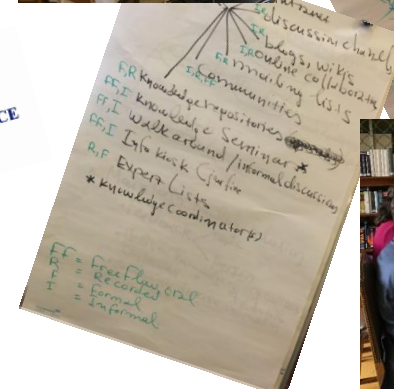 CE
discussion channels
I,R blogs, wikis
I,R online collaboration
F,R mailing lists
Communities
F,R Knowledge repositories
FF,I Knowledge Seminar *
FF,I Walk around / informal discussions
FF,I Info Kiosk
R,F Expert Lists
* Knowledge coordinator(s)
FF = Free Flow, oral
R = Recorded
F = Formal
I = Informal